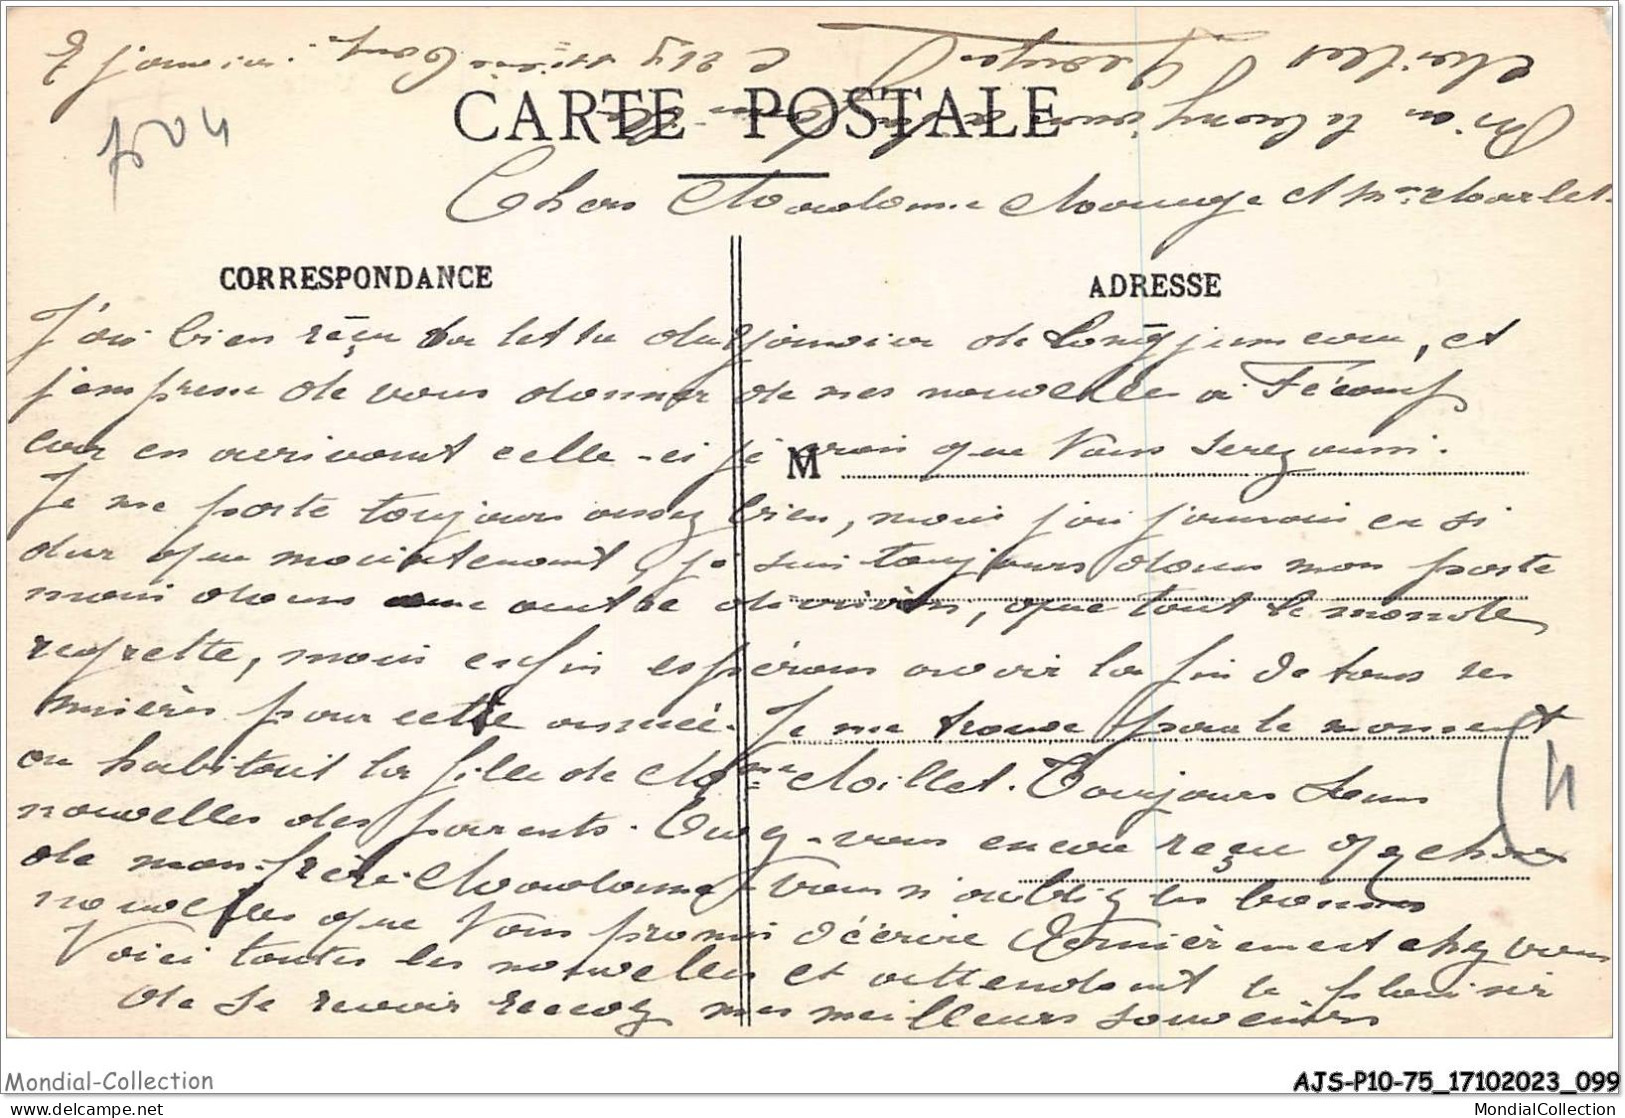 CARTE POSTALE
Chers Madame Mauge et Mr Charlet.
CORRESPONDANCE
ADRESSE
J'ai bien réçu ta lettre du janvier de Longjumeau, et
j'empresse de vous donner de mes nouvelles à Fécamp
car en arrivant celle-ci je crois que Vous serez aussi.
M
Je me porte toujours assez bien, mais j'ai jamais eu si
dur que maintenant, je suis toujours dans mon poste
mais dans une autre division, que tout le monde
regrette, mais enfin espérons avoir la fin de tous ses
misères pour cette année. Je me trouve pour le moment
ou habitait la fille de Mme Maillet. Toujours sans
nouvelles des parents. Avez-vous encore reçu qq chose
de mon frère. Madame Vous n'oubliez les bonnes
nouvelles que Vous promis d'écrire Dernièrement chez vous
Voici toutes les nouvelles et attendant le plaisir
de se revoir recevez mes meilleurs souvenirs
Mondial-Collection
AJS-P10-75_17102023_099
delcampe.net
MondialCollection